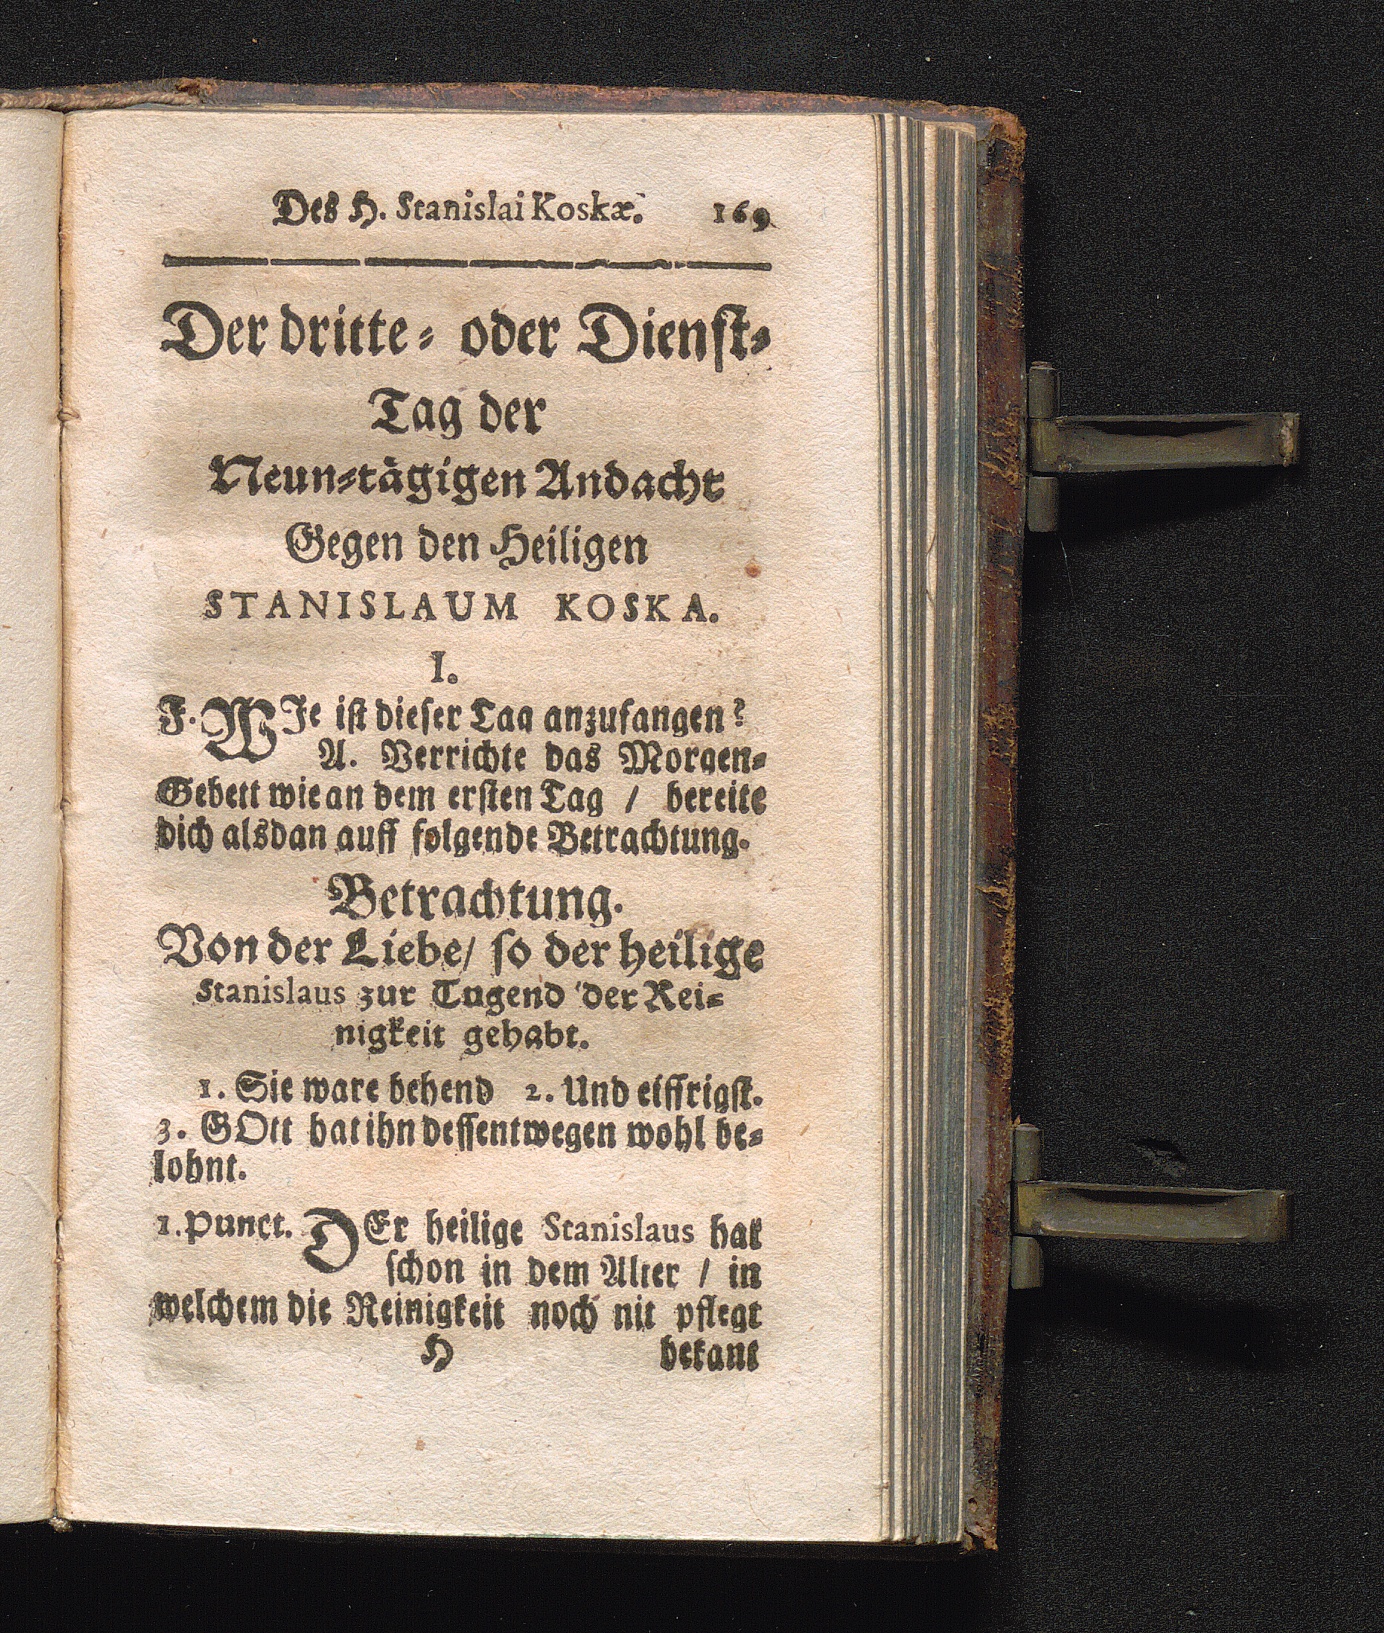 Des H. Stanislai Koskæ. 169
Der dritte= oder Dienst=
Tag der
Neun=tägigen Andacht
Gegen den Heiligen
STANISLAUM KOSKA.
I.
F. WIe ist dieser Tag anzufangen?
A. Verrichte das Morgen=
Gebett wie an dem ersten Tag / bereite
dich alsdan auff folgende Betrachtung.
Betrachtung.
Von der Liebe / so der heilige
Stanislaus zur Tugend der Rei=
nigkeit gehabt.
1. Sie ware behend 2. Und eiffrigst.
3. GOtt hat ihn dessentwegen wohl be=
lohnt.
1. Punct. DEr heilige Stanislaus hat
schon in dem Alter / in
welchem die Reinigkeit noch nit pflegt
H bekant